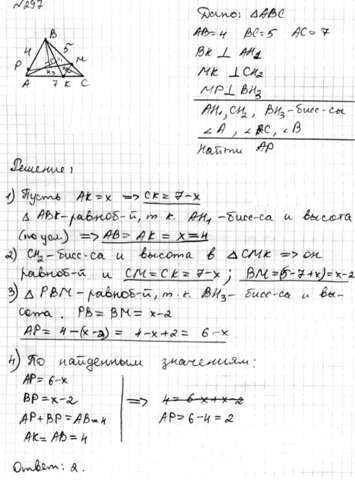 №297
Дано: △ABC
AB=4 BC=5 AC=7
BK ⊥ AH₁
MK ⊥ CH₂
MP ⊥ BH₃
AH₁, CH₂, BH₃ - бисс-сы
∠A, ∠C, ∠B
Найти AP
B
4 5
P M
A 7 K C
Решение:
1) Пусть AK=x => CK=7-x
△ ABK-равноб-й, т.к. AH₁ - бисс-са и высота
(по усл) => AB=AK=x=4
2) CH₂-бисс-са и высота в △CMK => он
равноб-й и CM=CK=7-x; BM=(5-7+x)=x-2
3) △ PBM-равноб-й, т.к. BH₃- бисс-са и вы-
сота. PB=BM=x-2
AP=4-(x-2)=4-x+2=6-x
4) По найденным значениям:
AP=6-x
BP=x-2 => 4=6-x+x-2
AP+BP=AB=4 AP=6-4=2
AK=AB=4
Ответ: 2.